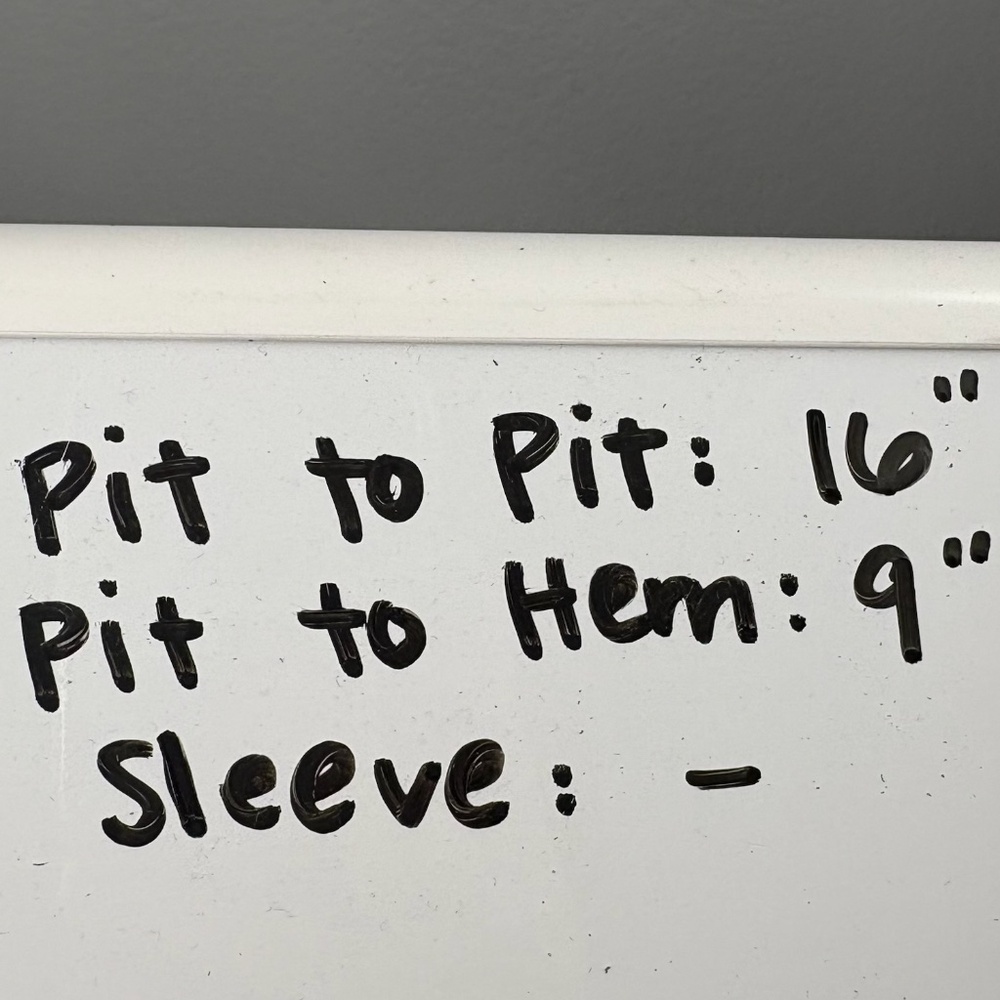 Pit to Pit: 16"
Pit to Hem: 9"
Sleeve: -